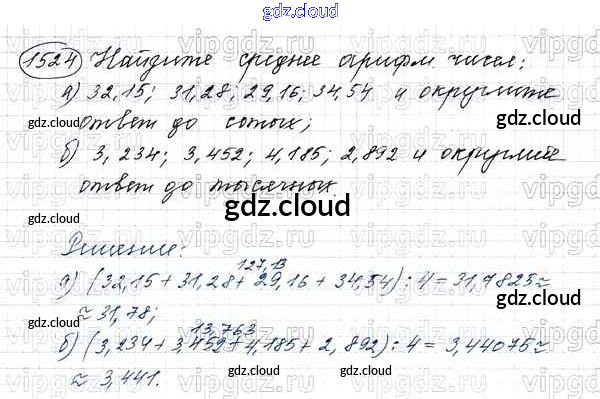 gdz.cloud
1524 Найдите среднее арифм чисел:
а) 32,15; 31,28; 29,16; 34,54 и округлите
ответ до сотых;
gdz.cloud gdz.cloud
б) 3,234; 3,452; 4,185; 2,892 и округлите
ответ до тысячных
gdz.cloud gdz.cloud
Решение:
127,13
а) (32,15 + 31,28 + 29,16 + 34,54) : 4 = 31,7825 ≈
≈ 31,78;
gdz.cloud gdz.cloud
13,763
б) (3,234 + 3,452 + 4,185 + 2,892) : 4 = 3,44075 ≈
≈ 3,441.
gdz.cloud gdz.cloud